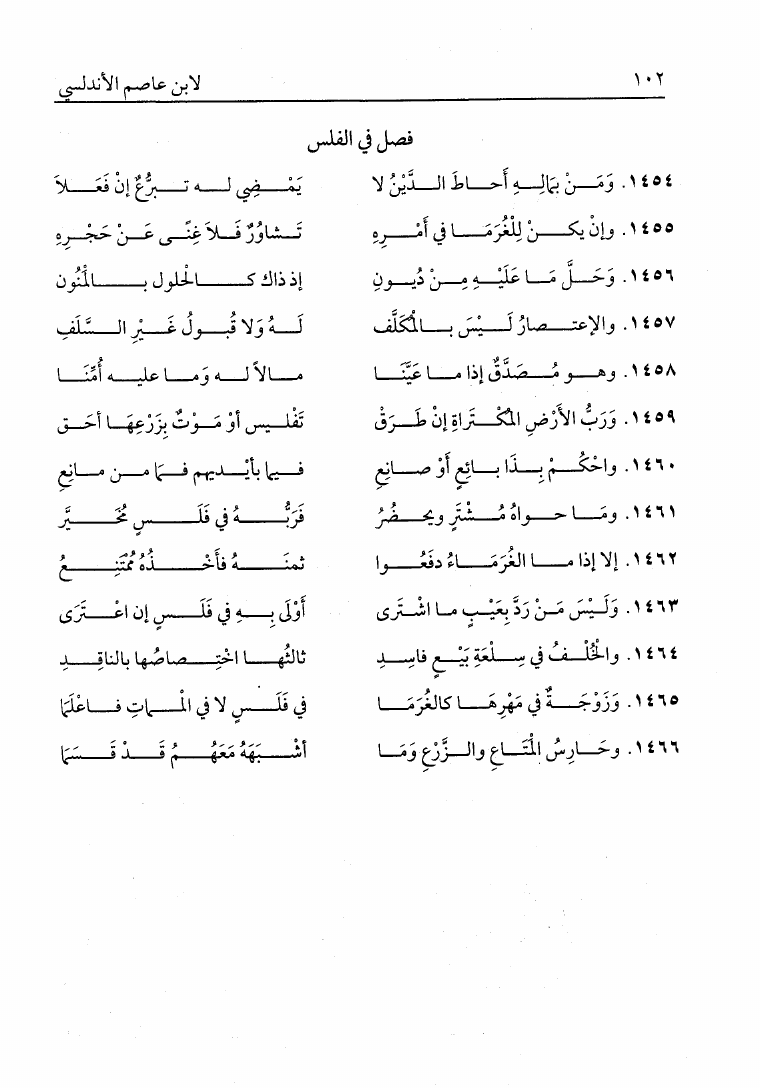 ١٠٢ لابن عاصم الأندلسي
فصل في الفلس
١٤٥٤. وَمَنْ بِمَالِهِ أَحاطَ الدَّيْنُ لا يَمْضِي له تبرُّعٌ إنْ فَعَلاَ
١٤٥٥. وإنْ يكنْ لِلْغُرَمَا في أَمْرِهِ تَشاوُرٌ فَلاَ غِنًى عَنْ حَجْرِهِ
١٤٥٦. وَحَلَّ مَا عَلَيْهِ مِنْ دُيونِ إذ ذاك كالحلول بالمَنُون
١٤٥٧. والإعتصارُ لَيْسَ بالمُكَلَّف لَهُ وَلا قُبولُ غَيْرِ السَّلَفِ
١٤٥٨. وهو مُصَدَّقٌ إذا ما عَيَّنَا مالاً له وَما عليه أُمِّنَا
١٤٥٩. وَرَبُّ الأرْضِ المُكْتَراةِ إنْ طَرَقْ تَفْليس أوْ مَوْتٌ بِزَرْعِهَا أحَق
١٤٦٠. واحْكُمْ بِذَا بائِعٍ أَوْ صانِعِ فيما بأيْديهم فما من مانِعِ
١٤٦١. ومَا حواهُ مُشْتَرٍ ويحضُرُ فَرَبُّهُ في فَلَسٍ مُخَيَّر
١٤٦٢. إلا إذا ما الغُرَمَاءُ دفَعُوا ثمنَهُ فأخْذُهُ مُمْتَنِعُ
١٤٦٣. وَلَيْسَ مَنْ رَدَّ بِعَيْبٍ ما اشْتَرى أوْلَى بِهِ في فَلَسٍ إن اعْتَرَى
١٤٦٤. والخُلْفُ في سِلْعَةِ بَيْعٍ فاسِدِ ثالثُها اخْتِصاصُها بالناقِدِ
١٤٦٥. وَزَوْجَةٌ في مَهْرِهَا كالغُرَمَا في فَلَسٍ لا في المماتِ فاعْلَمَا
١٤٦٦. وحَارِسُ المَتَاعِ والزَّرْعِ وَمَا أشْبَهَهُ مَعَهُمُ قَدْ قَسَمَا